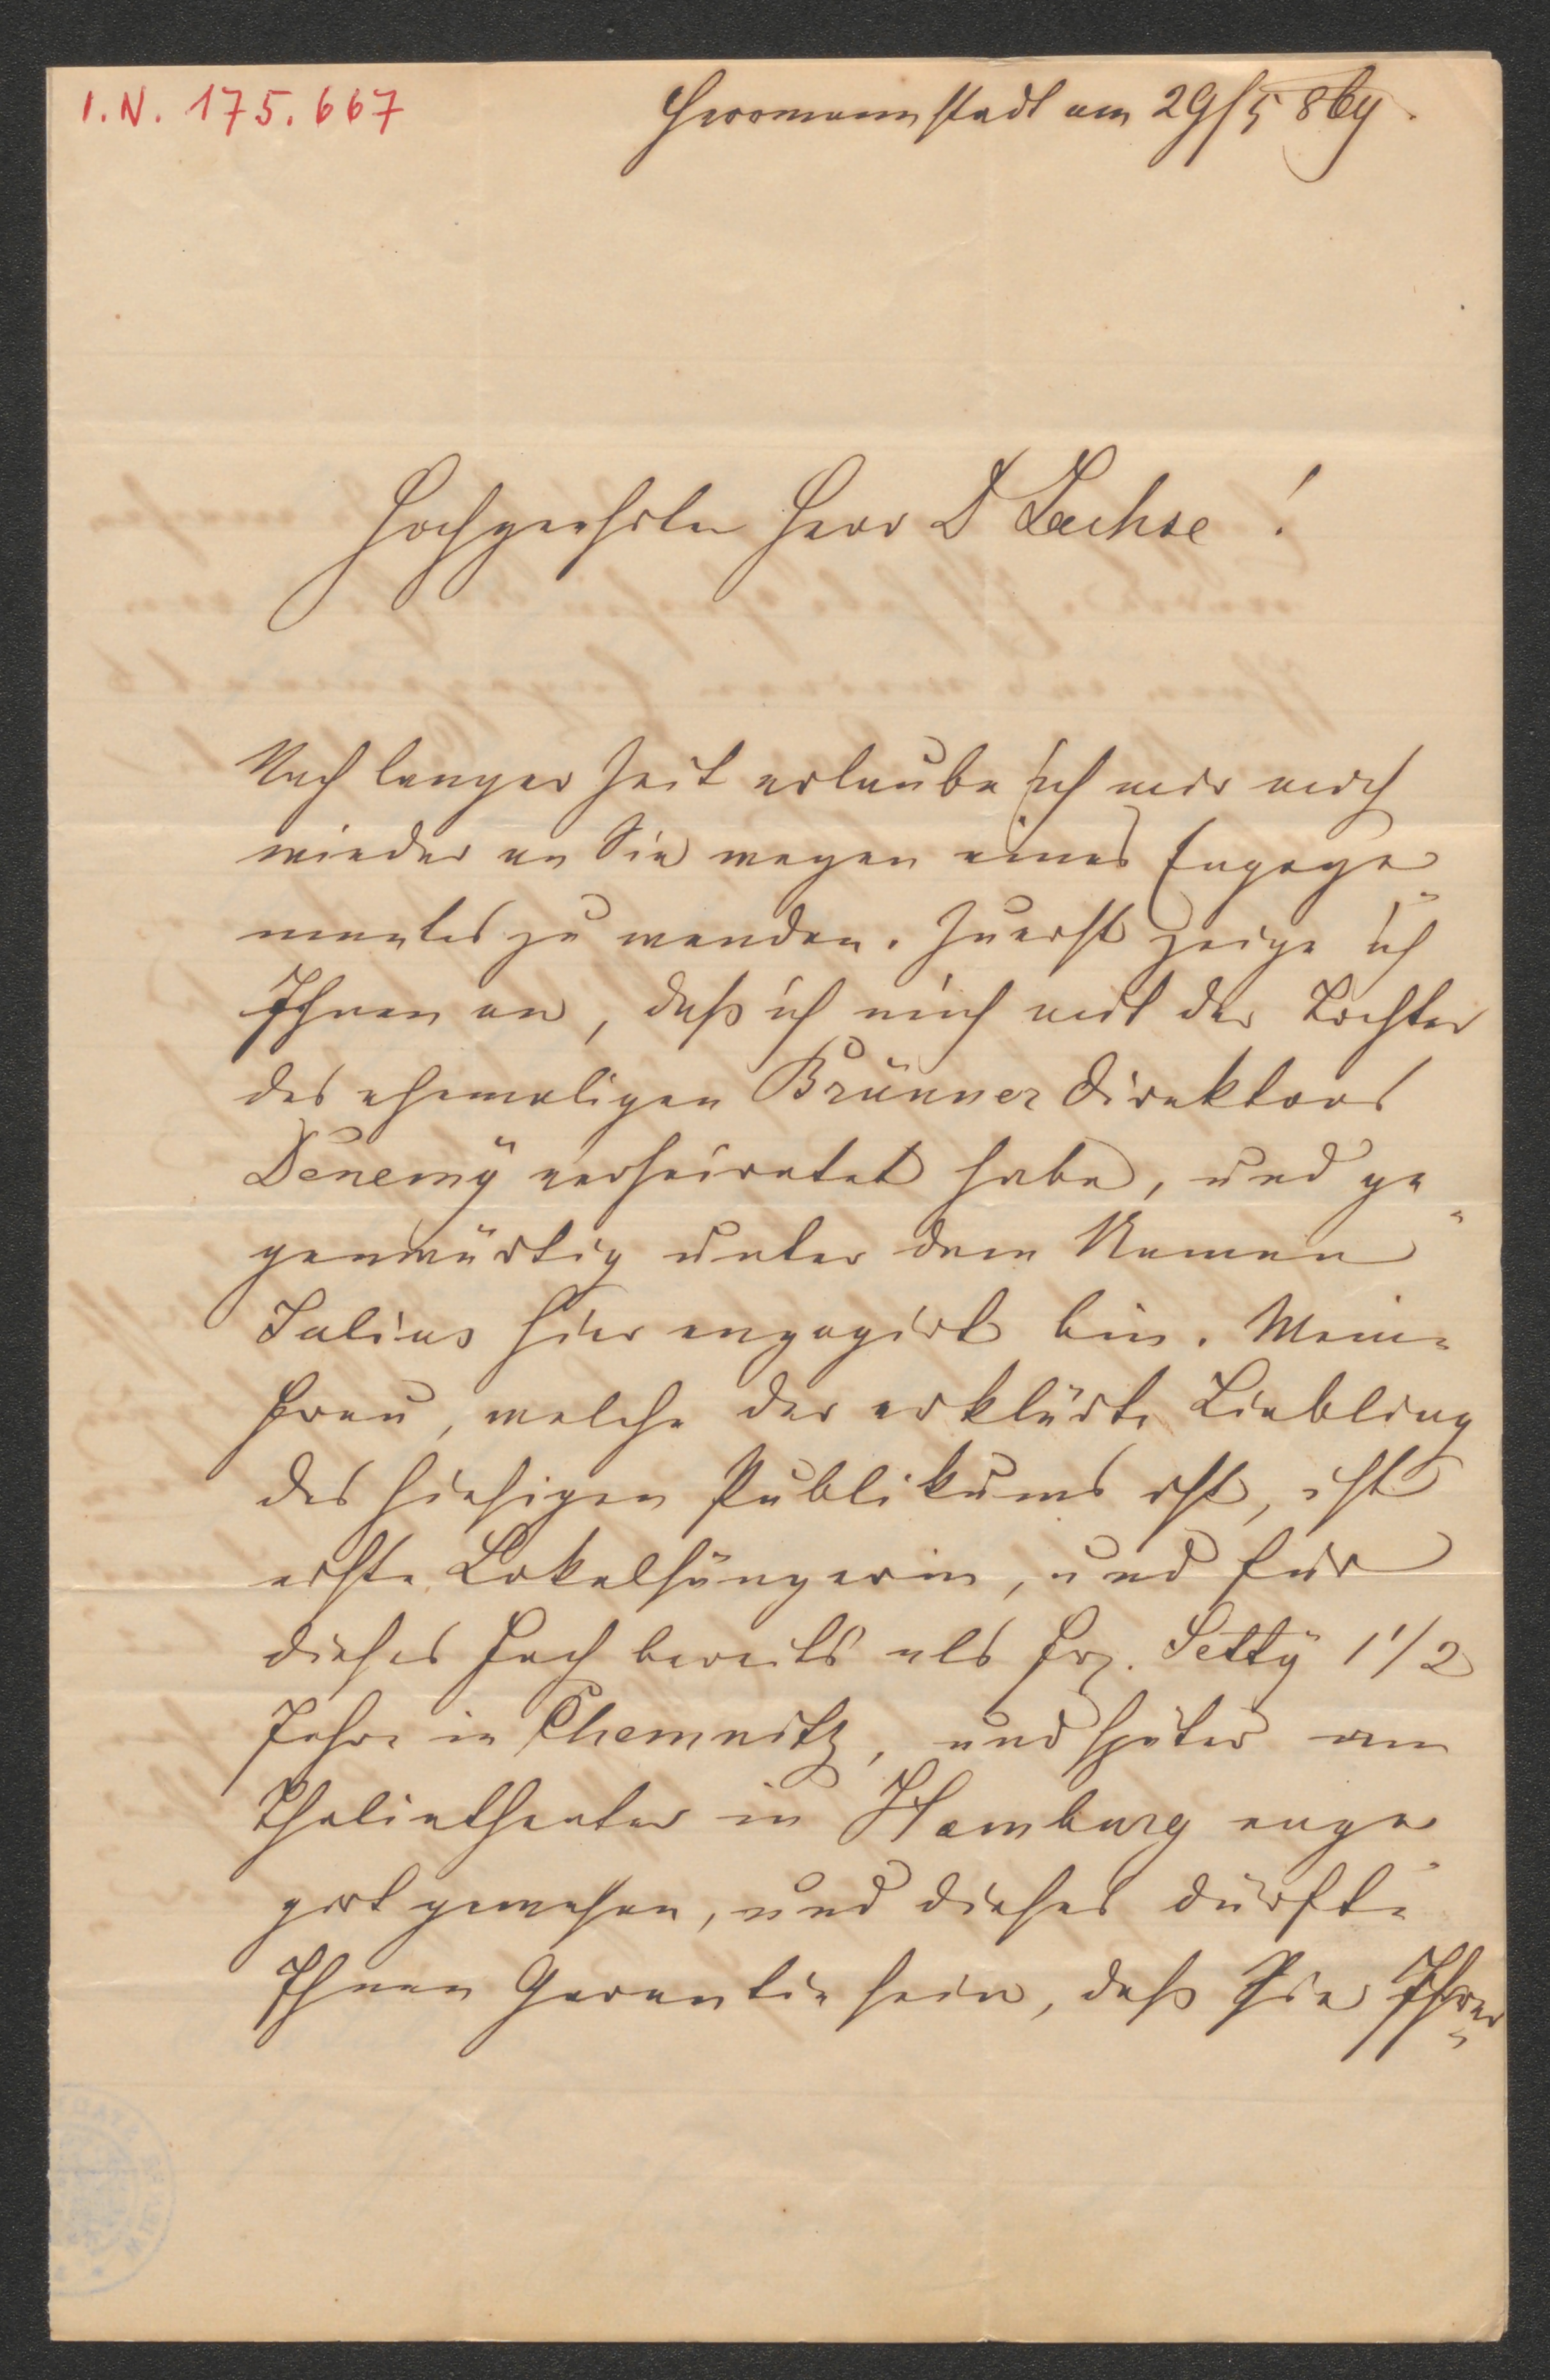 I.N. 175.667
Herrmannstadt am 29/5 869.
Hochgeehrter Herr D Lachse!
Nach langer Zeit erlaube ich mir mich
wieder an Sie wegen eines Engage
mentes zu wenden. Zuerst zeige ich
Ihnen an, daß ich mich mit der Tochter
des ehemaligen Brünner Direktors
Denemÿ verheiratet habe, und ge
genwärtig unter dem Namen
Julius hier engagirt bin. Meine
Frau, welche der erklärte Liebling
des hiesigen Publikums ist, ist
erste Lokalsängerin, und für
dieses Fach bereits als Frl. Settÿ 1 1/2
Jahre in Chemnitz, und später am
Thaliatheater in Hamburg enga
girt gewesen, und dieses dürfte
Ihnen Garantie sein, daß Sie Ihrer